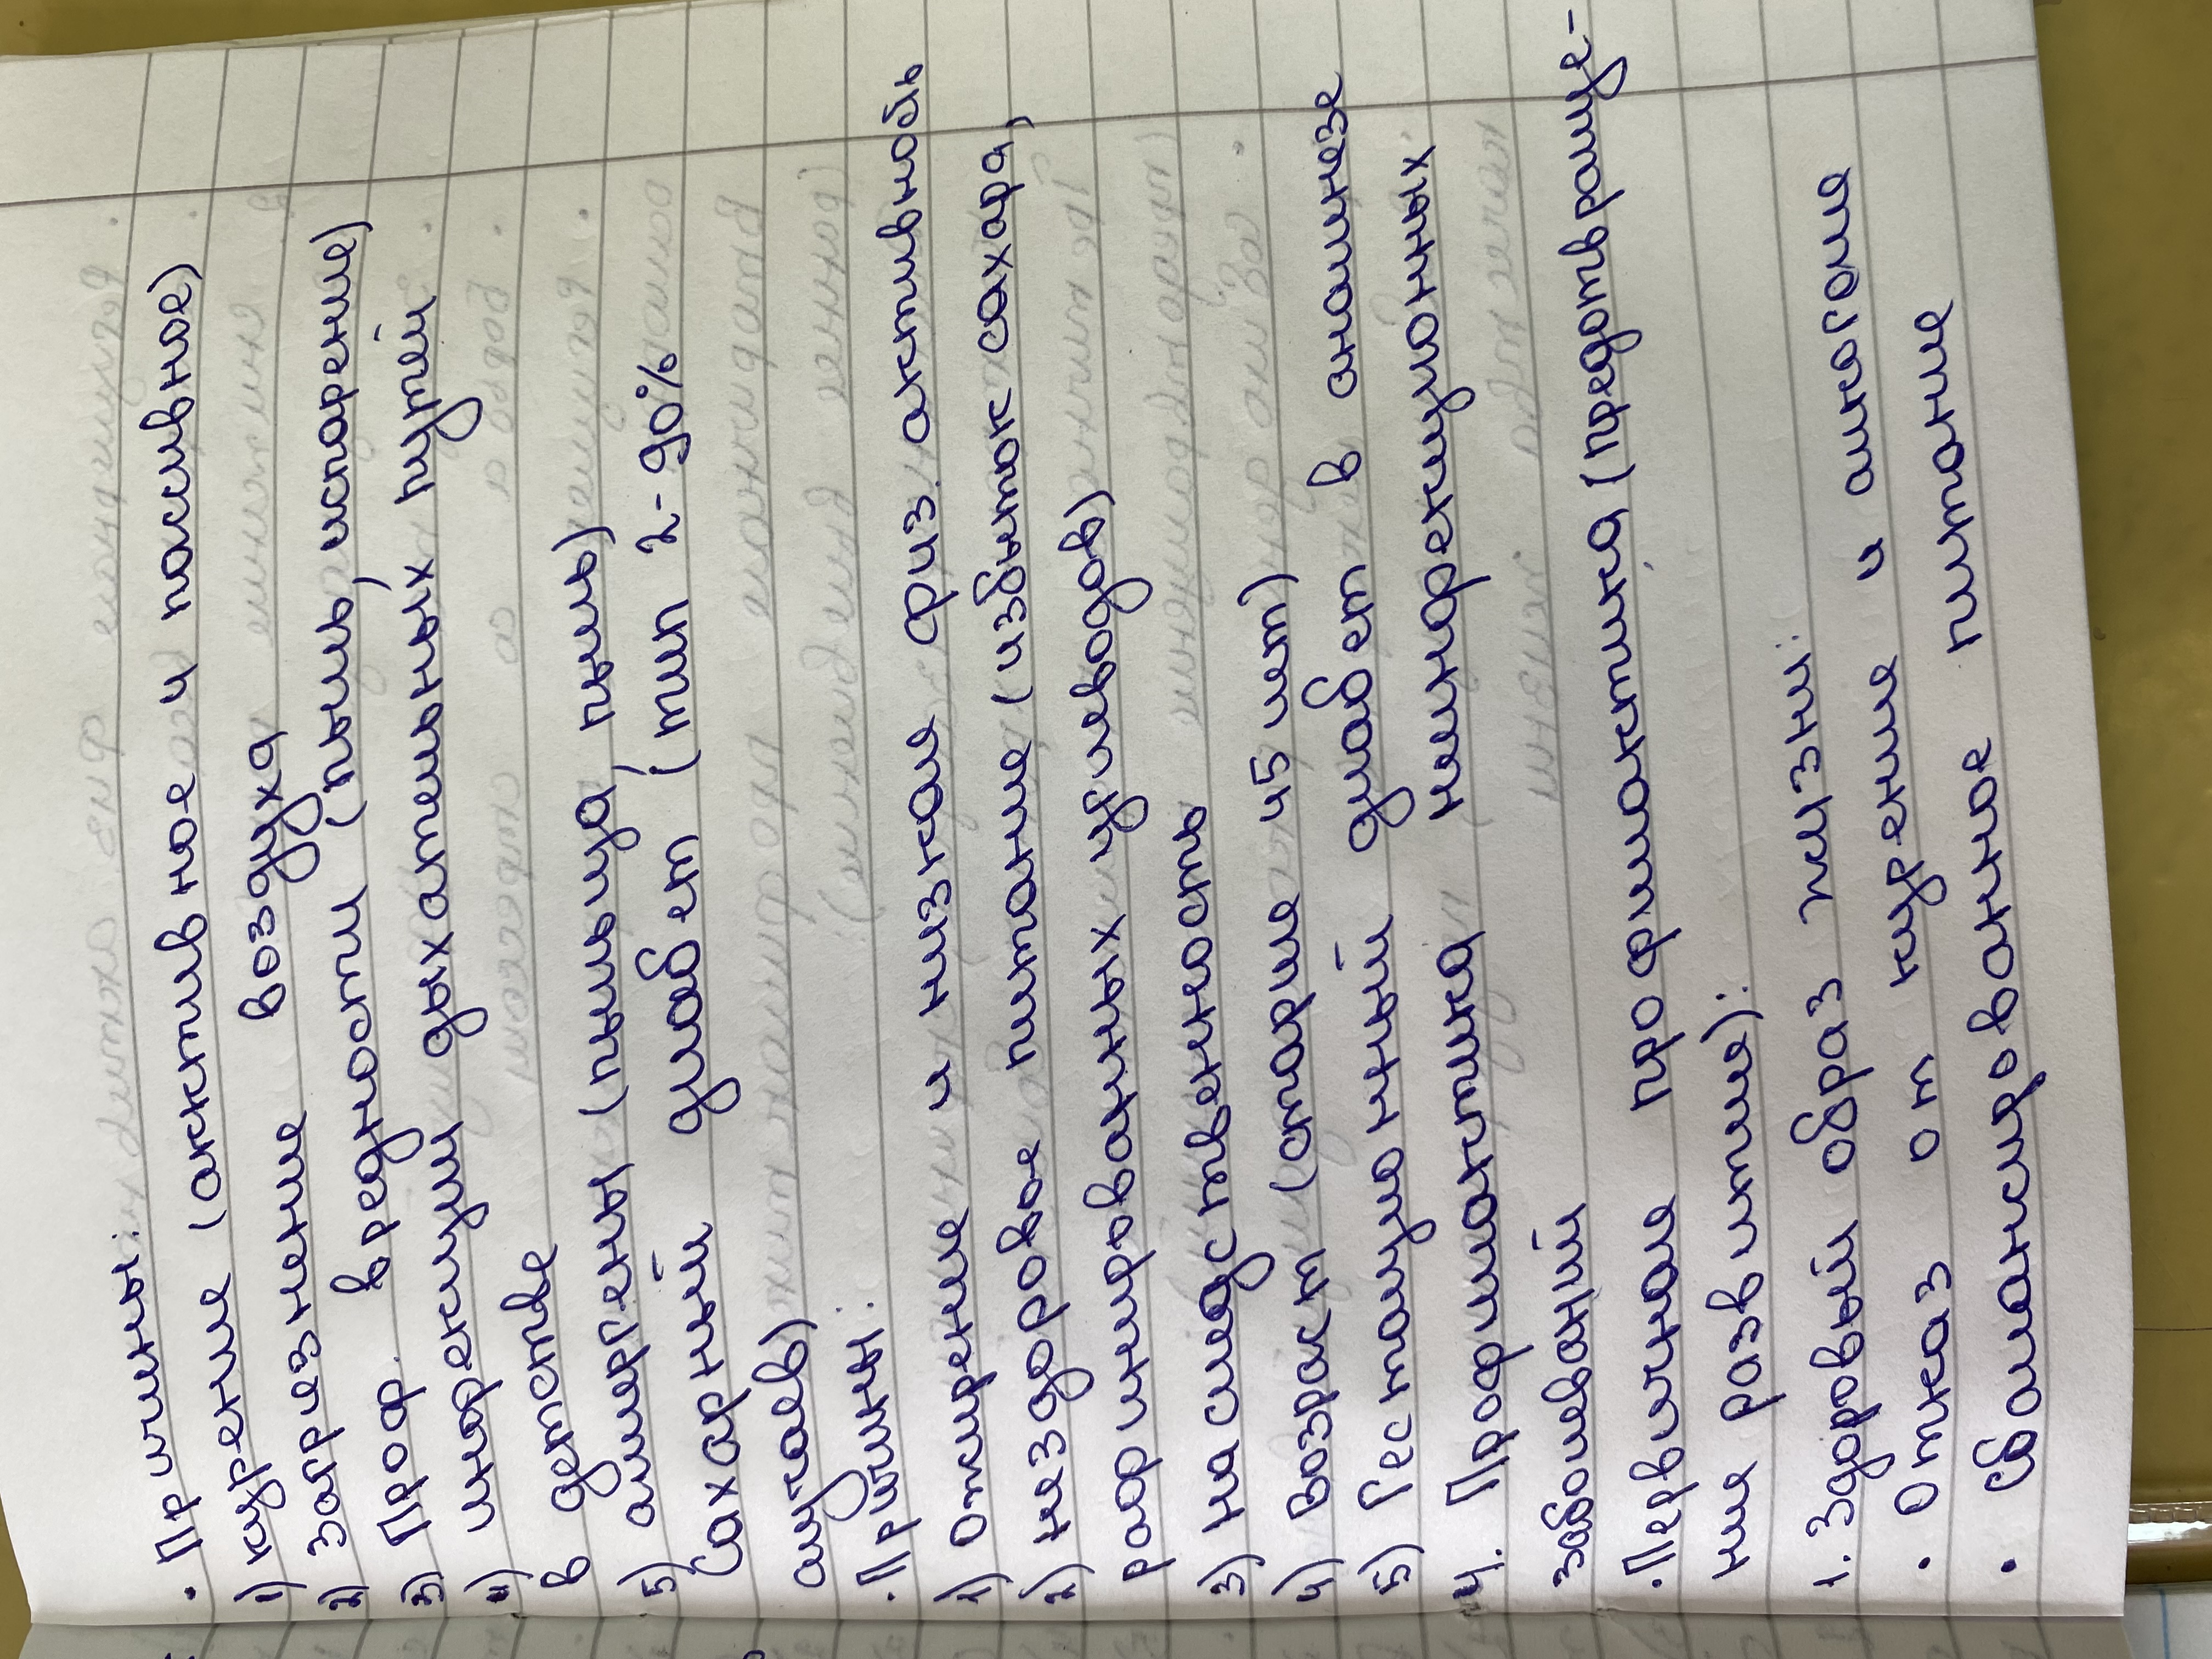 • Причины:
1) курение (активное и пассивное)
2) загрязнение воздуха
3) Проф. вредности (пыль, испарение)
4) инфекции дыхательных путей
в детстве
5) аллергены (пыльца, пыль)
Сахарный диабет (тип 2-90%
случаев)
• Причины:
1) Ожирение и низкая физ. активность
2) нездоровое питание (избыток сахара,
рафинированных углеводов)
3) наследственность
4) Возраст (старше 45 лет)
5) Гестационный диабет в анамнезе
4. Профилактика неинфекционных
заболеваний
• Первичная профилактика (предотвраще-
ние развития):
1. Здоровый образ жизни:
• Отказ от курения и алкоголя
• Сбалансированное питание